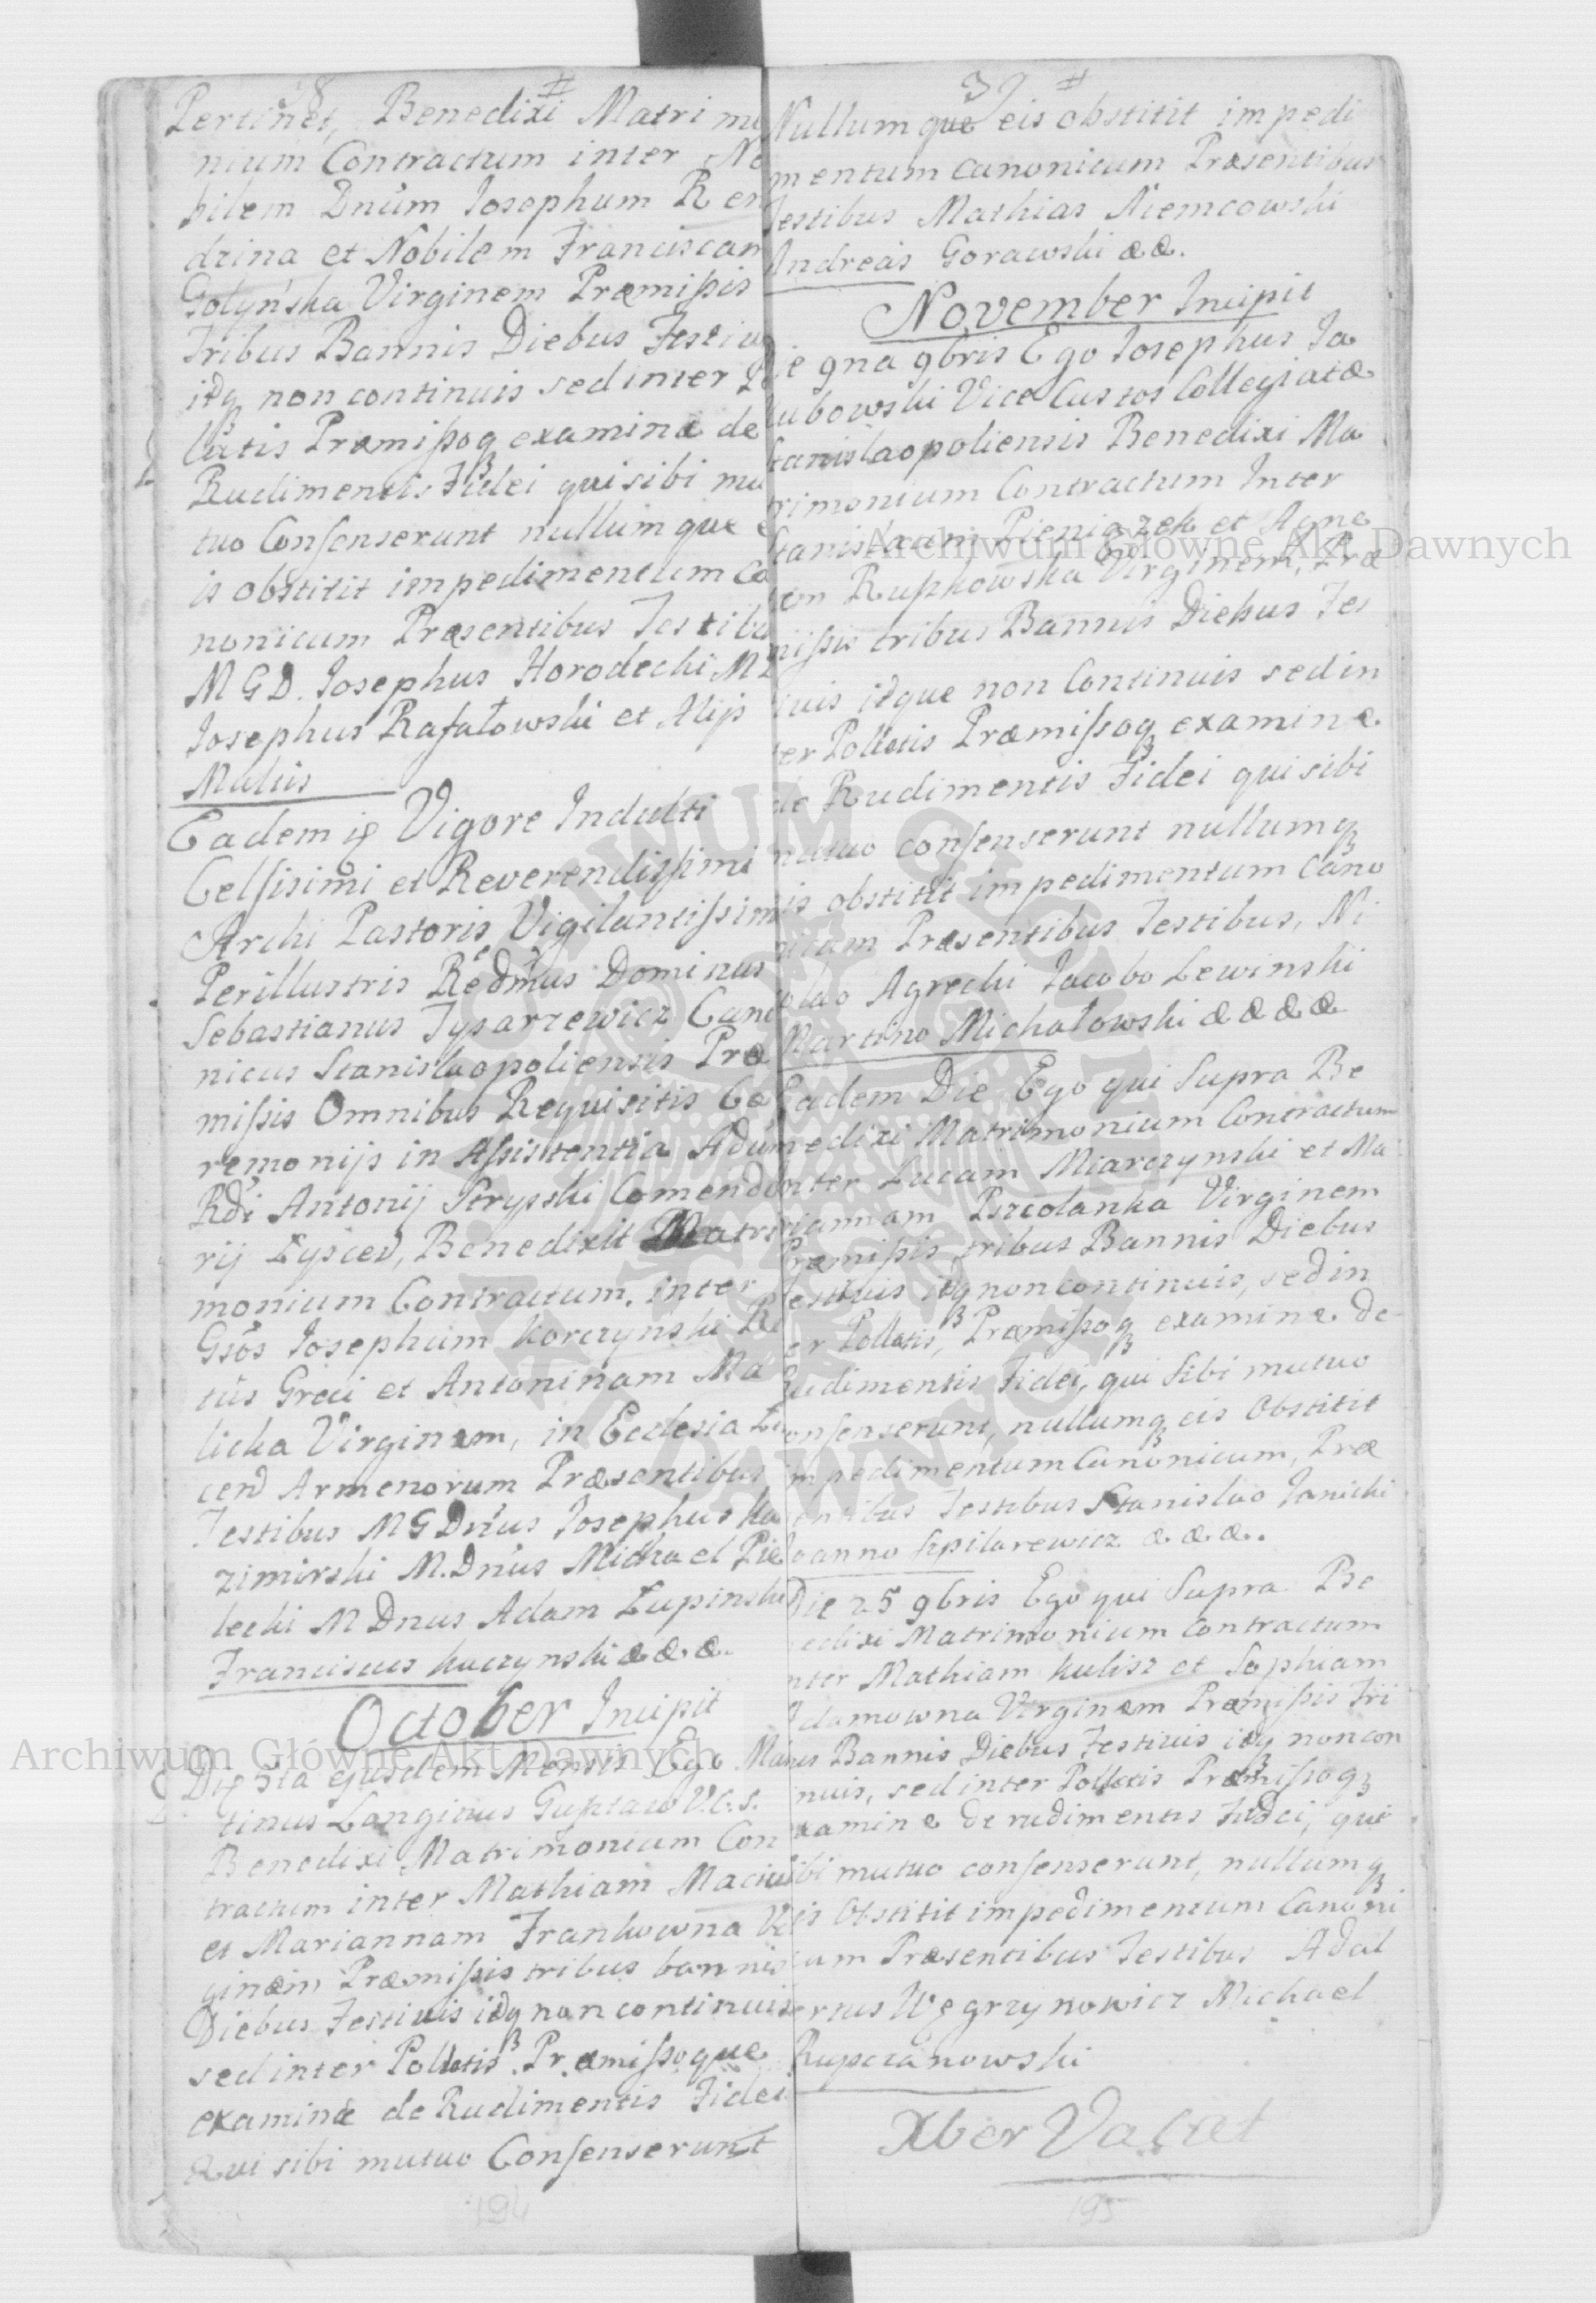 8 #
Pertinet, Benedixi Matri mu
nium Contractum inter No
bilem Dnum Josephum Ren
drina et Nobilem Franciscam
Golyńska Virginem Præmissis
Tribus Bannis Diebus Festiu
idq non continuis sed inter Po
llutis Præmissoq examinæ de
Rudimentis Fidei qui sibi mu
tuo Consenserunt nullum que e
is obstitit impedimentum Ca
nonicum Præsentibus Testibu
M G D. Josephus Horodecki M
Josephus Rafałowski et Alijs
Multis
Eadem Vigore Indulti
Celsisimi et Reverendissimi
Archi Pastoris Vigilantissim
Perillustris Rēdmus Dominus
Sebastianus Tysarzewicz Cano
nicus Stanislaopoliensis Præ
missis Omnibus Requisitis Cæ
remonijs in Assistentia Adum
Rdi Antonij Stryski Comenda
rij Lyscen, Benedixit Matri
monium Contractum, inter
Gsōs Josephum Korczynski Ri
tūs Græci et Antoninam Ma
licka Virginem, in Ecclesia Li
cen Armenorum Præsentibus
Testibus M G Dnus Josephus Ka
zimirski M. Dnus Michael Pie
lecki M Dnus Adam Łupinski
Franciscus Kuczynski & & &
October Incipit
Die 7ia ejusdem Mensis Ego Mar
tinus Longinus V.C.S.
Benedixi Matrimonium Con
tractum inter Mathiam Maciu
et Mariannam Frankowna Vi
ginem Præmissis tribus bannis
Diebus Festivis idq non continuis
sed inter Pollutis Præmissoque
examinæ de Rudimentis Fidei
Qui sibi mutuo Consenserunt
194
39 #
Nullum que eis obstitit impedi
mentum canonicum Præsentibus
Testibus Mathias Niemcowski
Andreas Gorawski & &.
November Incipit
Die 9na 9bris Ego Josephus Ja
kubowski Vice Custos Collegiatæ
Stanislaopoliensis Benedixi Ma
trimonium Contractum Inter
Stanisłaum Pieniązek et Agne
tem Rupkowska Virginem, Præ
missis tribus Bannis Diebus Fes
tiuis idque non Continuis sed in
ter Pollutis Præmissoq examinæ
de Rudimentis Fidei qui sibi
mutuo consenserunt nullumq
eis obstitit impedimentum Cano
nicum Præsentibus Testibus, Ni
colao Agrecki Jacobo Lewinski
Martino Michałowski & & & &
Eadem Die Ego qui Supra Be
nedixi Matrimonium Contractum
Inter Lucam Miarczynski et Ma
riannam Pszcolanka Virginem
Præmissis tribus Bannis Diebus
Festiuis idq non continuis, sed in
ter Pollutis, Præmissoq examinæ de
Rudimentis Fidei, qui Sibi mutuo
Consenserunt, nullumq eis Obstitit
impedimentum Canonicum, Præ
sentibus Testibus Stanislao Janicki
Joanno Szpilarewicz & & &.
Die 25 9bris Ego qui Supra Be
nedixi Matrimonium Contractum
Inter Mathiam Kulisz et Sophiam
Adamowna Virginem Præmissis Tri
bus Bannis Diebus Festiuis idq non con
tinuis, sed inter Pollutis Præmissoq
examinæ de rudimentis Fidei, qui
sibi mutuo consenserunt, nullumq
eis Obstitit impedimentum Canoni
cum Præsentibus Testibus Adal
bertus Węgrzynowicz Michael
Rupczanowski
Xber Vacat
195
Archiwum Główne Akt Dawnych
Archiwum Główne Akt Dawnych
ARCHIWUM GŁÓWNE AKT DAWNYCH